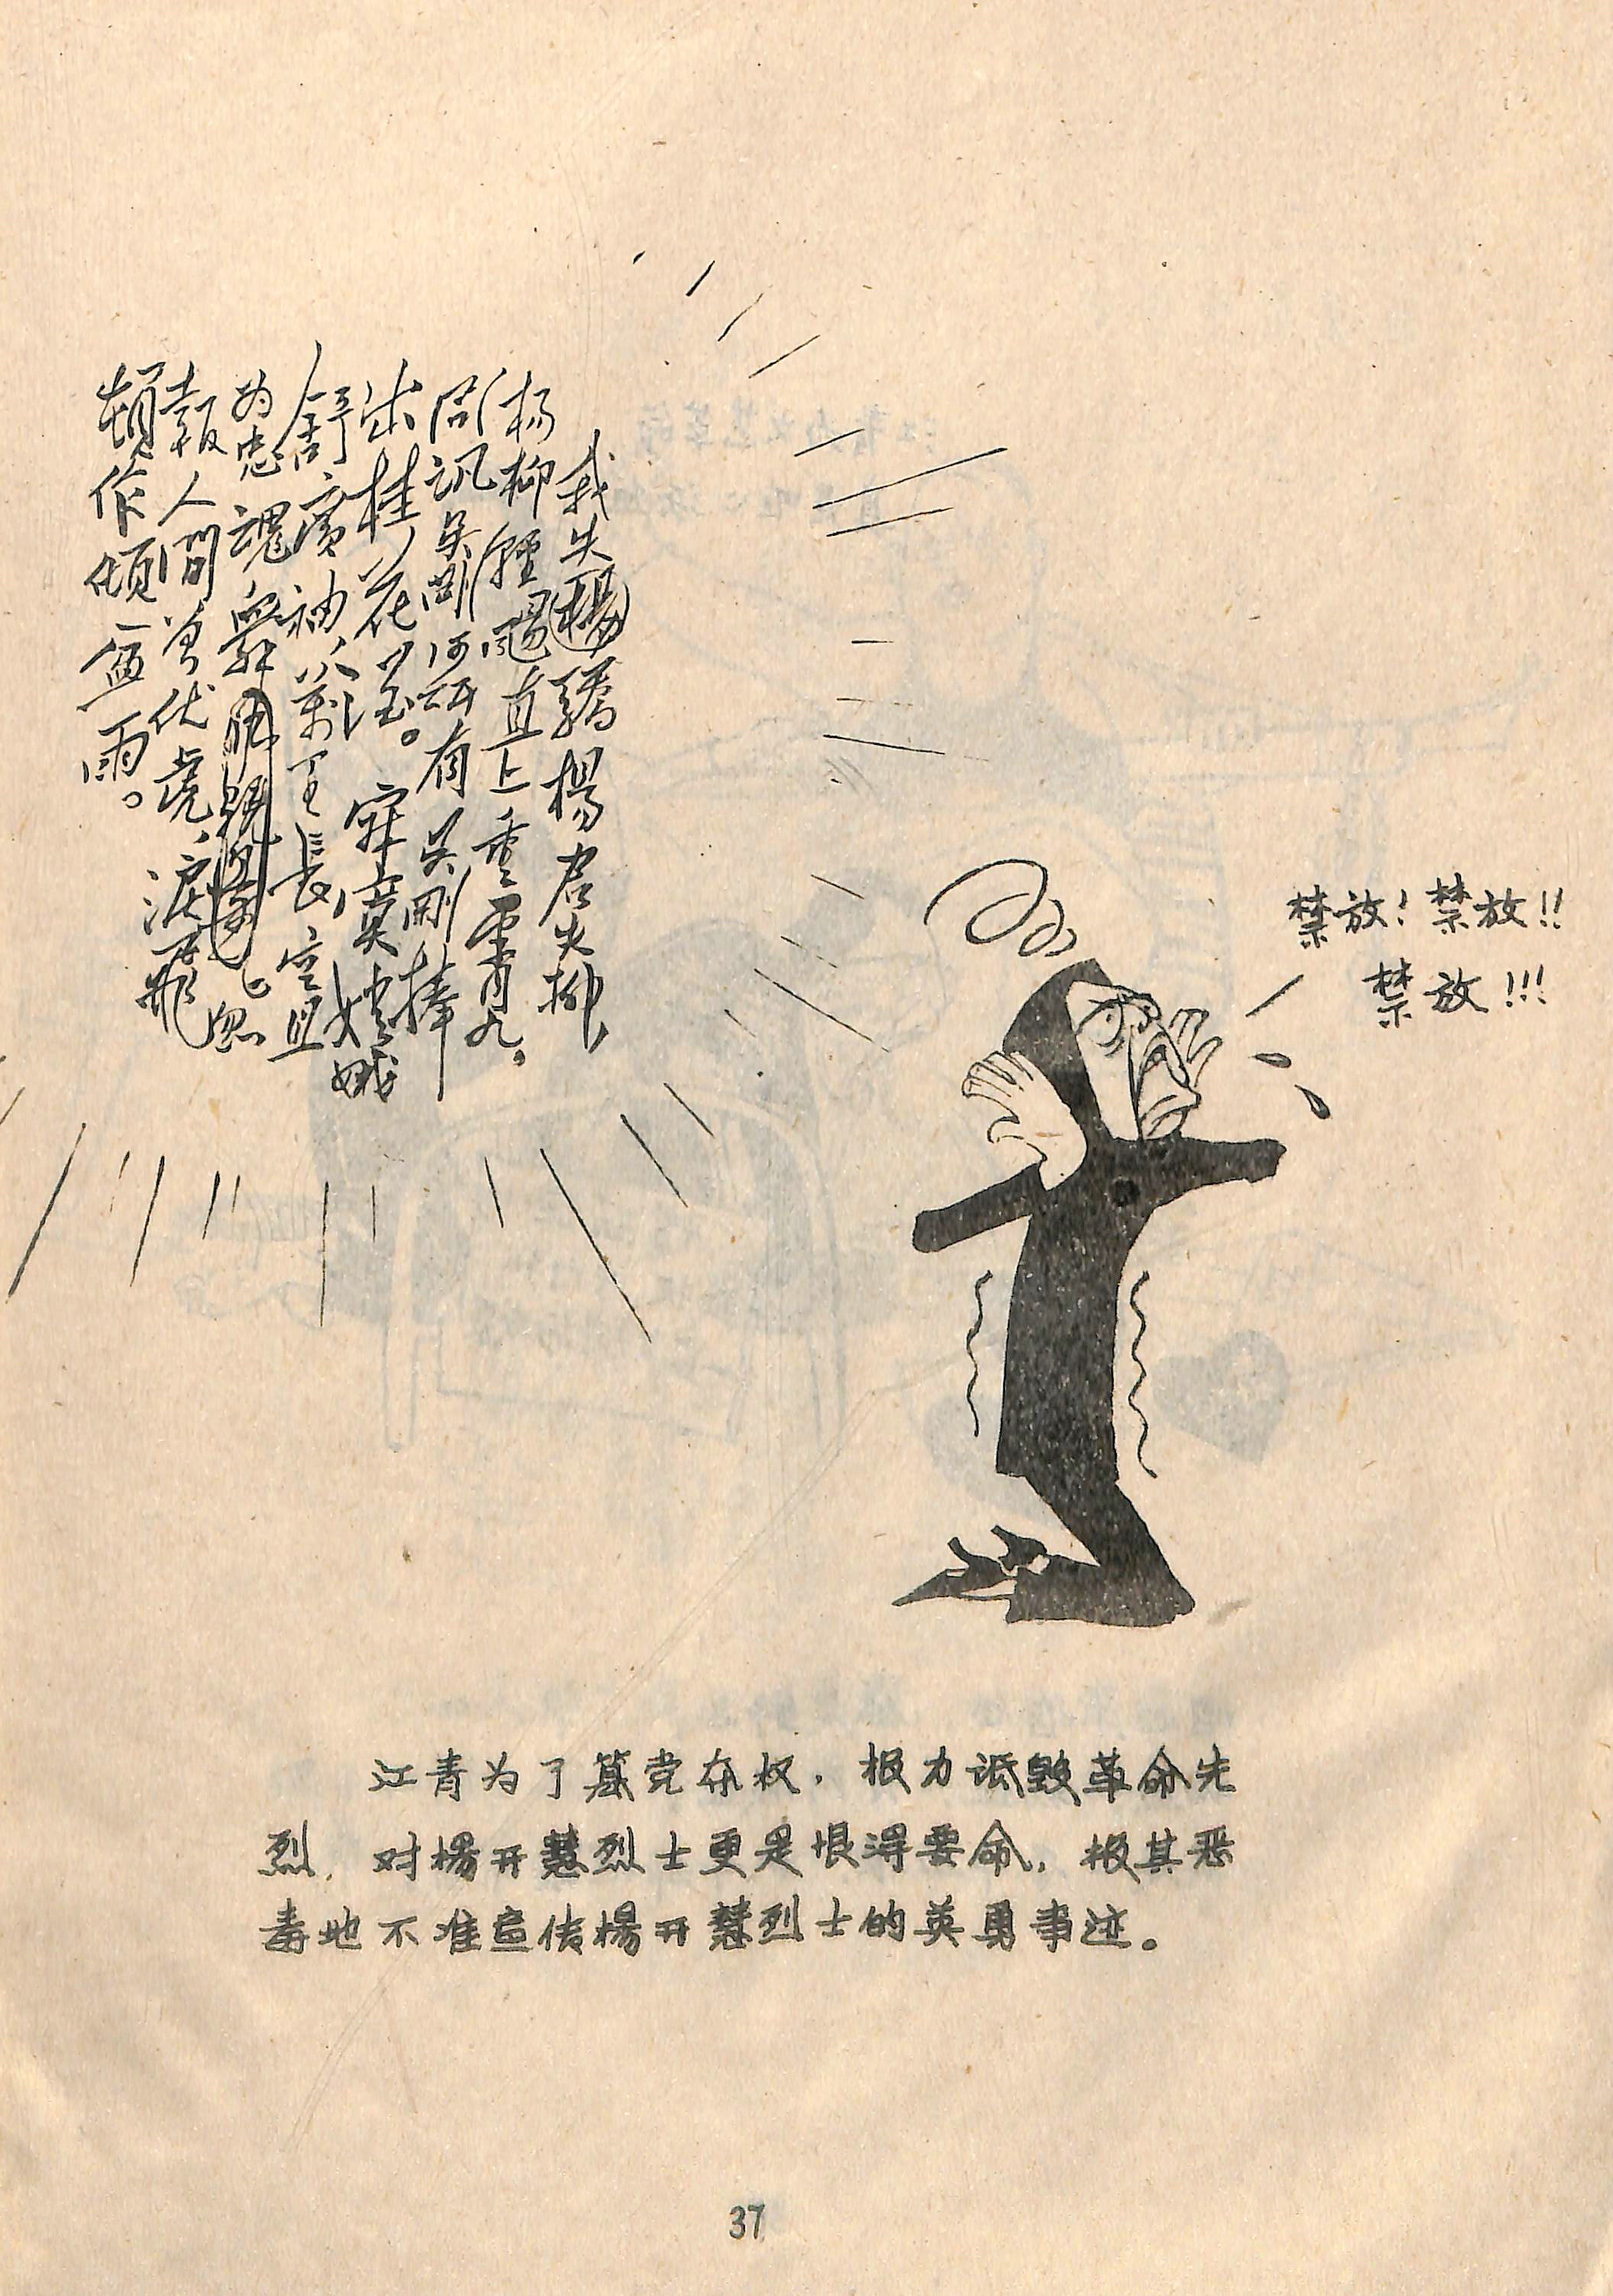 我失驕楊君失柳，
杨柳輕颺直上重霄九。
问讯吴剛何所有 吴剛捧
出桂花酒。寂寞嫦娥
舒廣袖、萬里長空且
为忠魂舞。忽
報人間曾伏虎、淚飛
頓作傾盆雨。
禁放！禁放！！
禁放！！！
江青为了篡党夺权，极力诋毁革命先
烈，对楊开慧烈士更是恨得要命，极其恶
毒地不准宣传楊开慧烈士的英勇事迹。
37